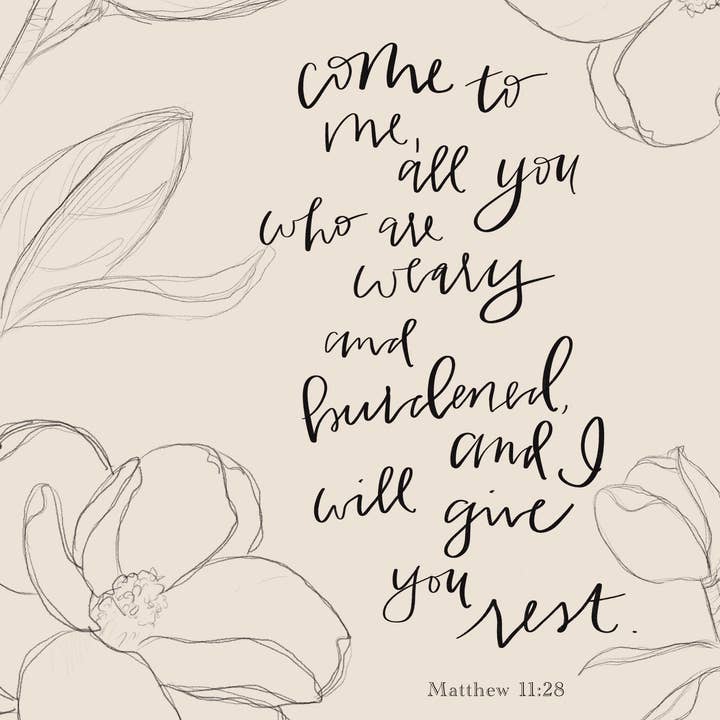 come to
me, all you
who are
weary
and
burdened,
and I
will give
you
rest.
Matthew 11:28